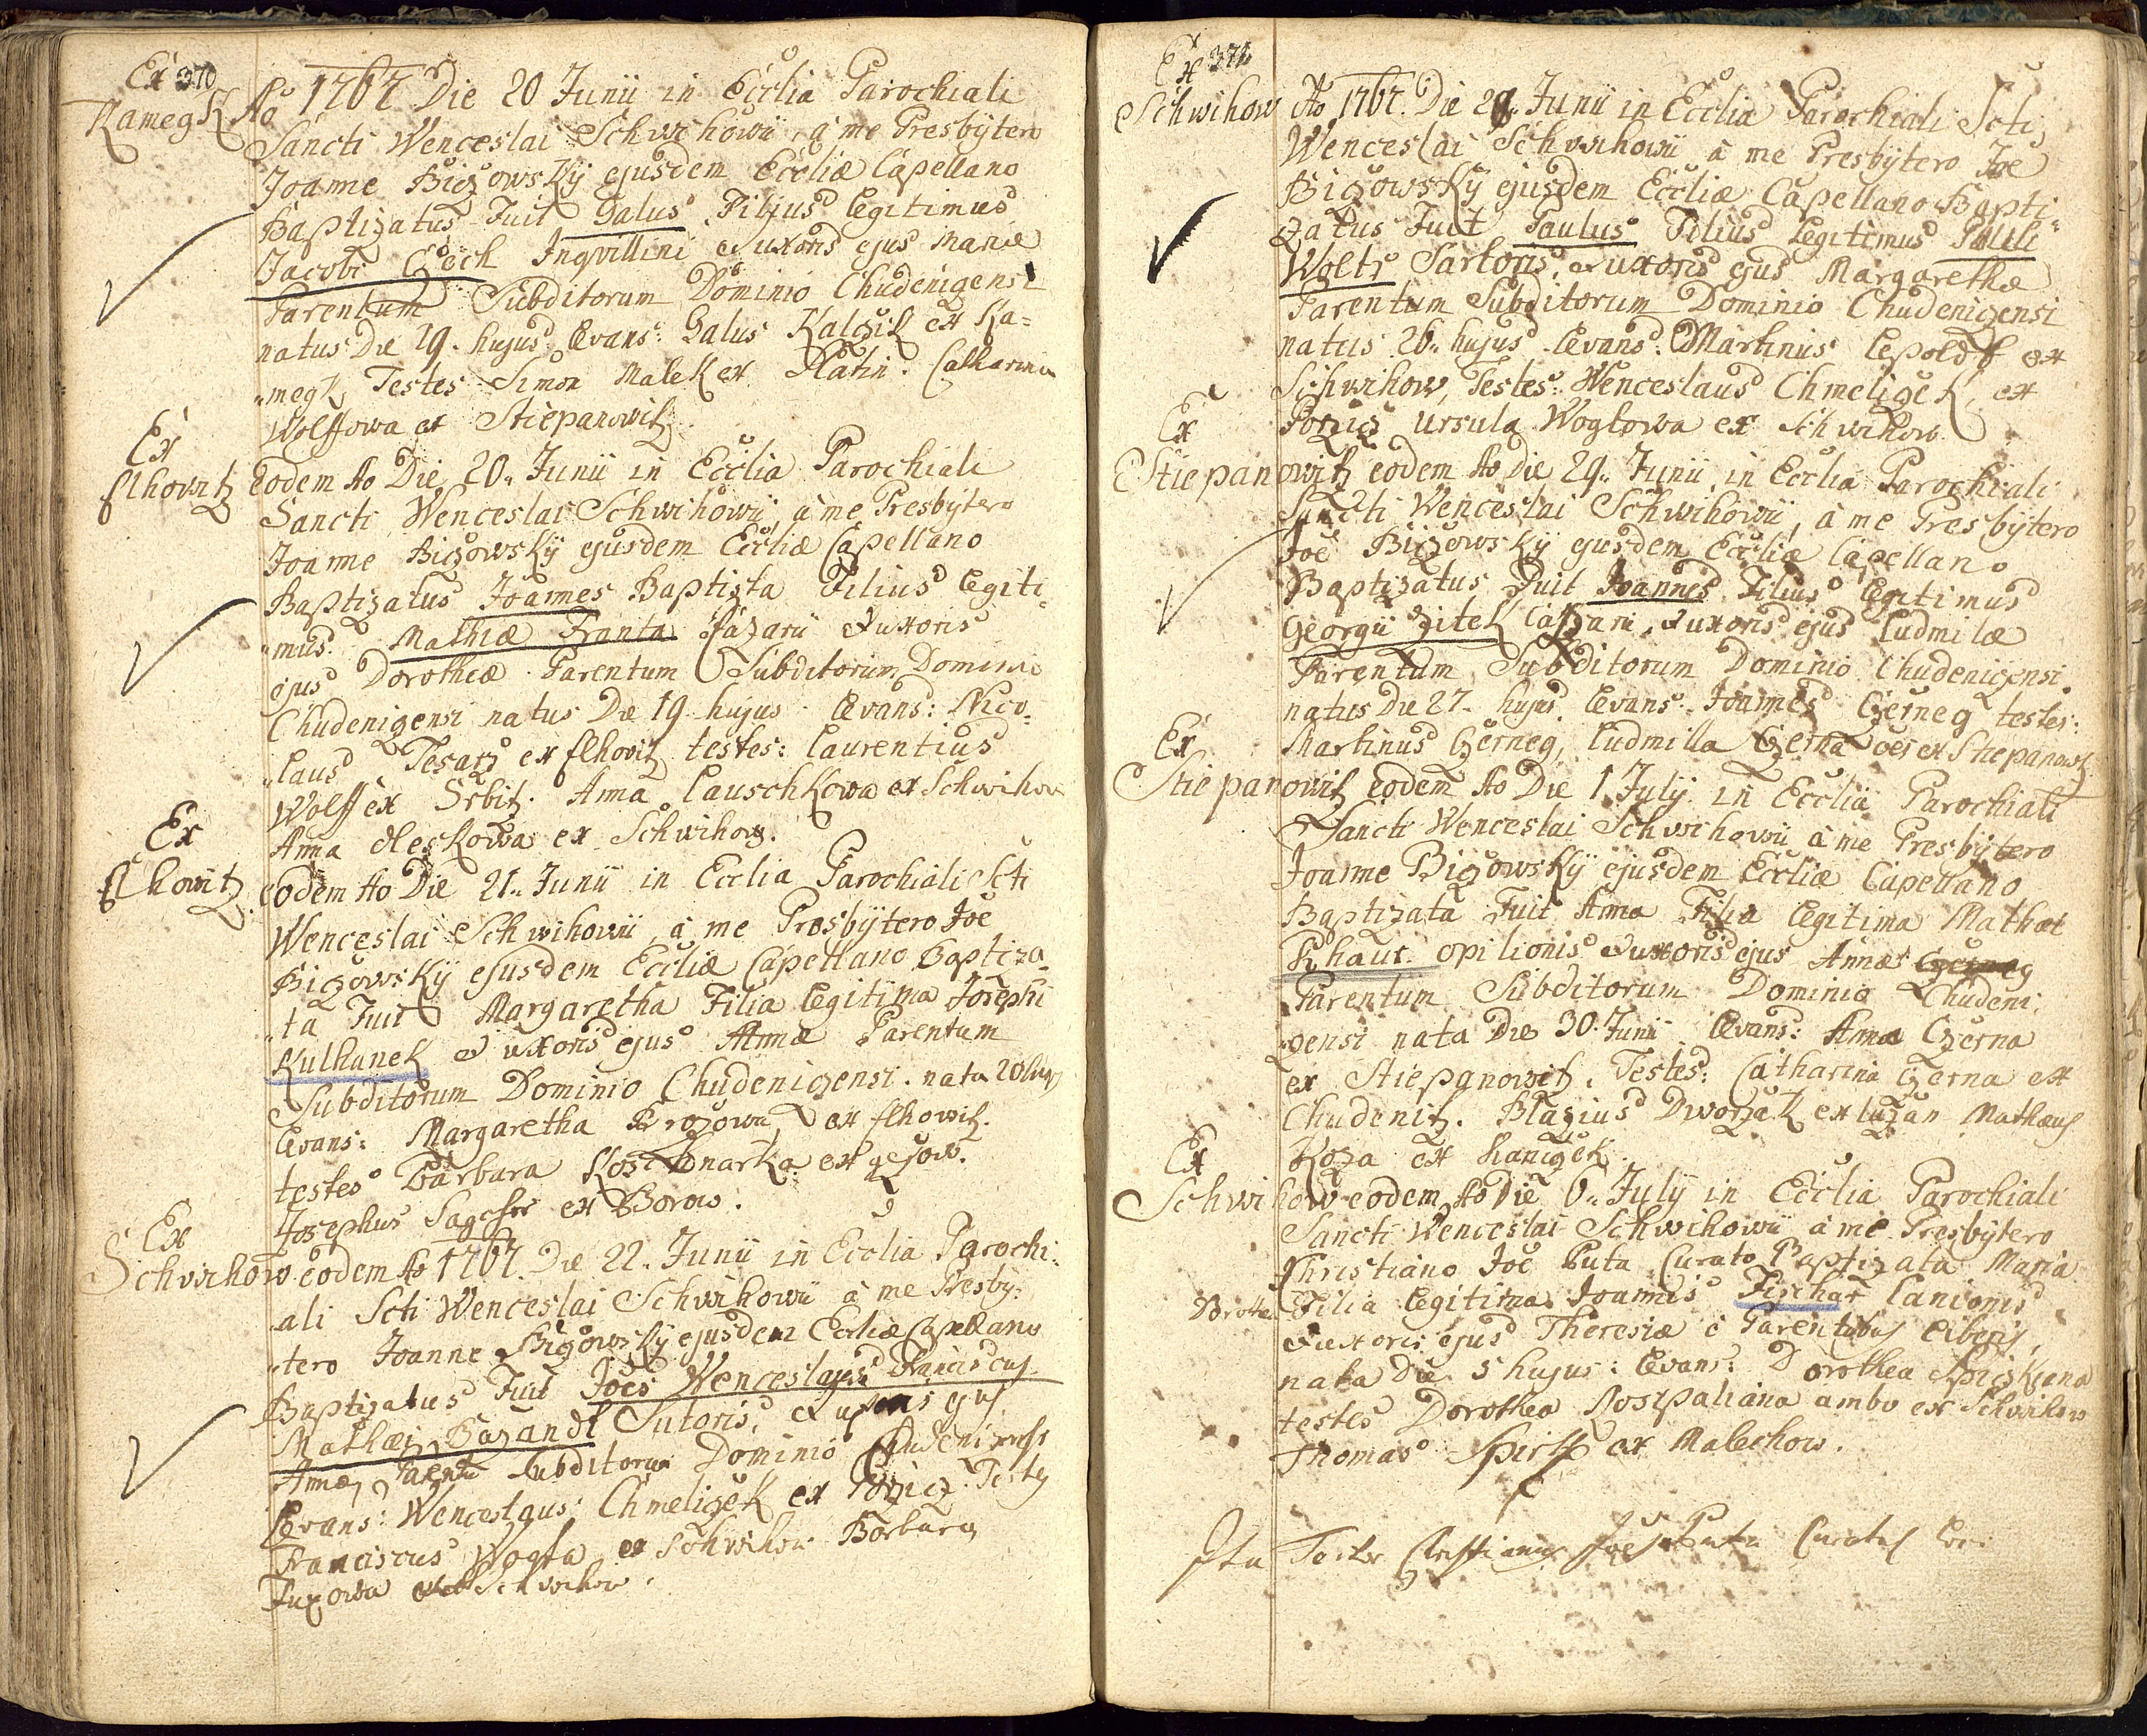 Ex 370
Kamegk Ao 1767 Die 20 Junii in Ecclia Parochiali
Sancti Wenceslai Schwihowii, à me Presbytero
Joanne Bizowsky ejusdem Eccliæ Capellano
Baptizatus Fuit Galus Filjus legitimus
Jacobi Inqvillini et uxoris ejus Mariæ
Parentum Subditorum Dominio Chudenizensi
natus Die 19. hujus Levans: Galus Kalczik ex Ka=
megk Testes Simon Malek ex Platin. Catharina
Wolffowa ex Stiepanowitz.
Ex
flhowitz Eodem Ao Die 20. Junii in Ecclia Parochiali
Sancti Wenceslai Schwihowii, à me Presbytero
Joanne Bizowsky ejusdem Eccliæ Capellano
Baptizatus Joannes Baptista Filius legiti=
mus. Mathiæ Franta et uxoris
ejus Dorotheæ Parentum Subditorum Dominio
Chudenizensi natus Die 19 hujus. Levans: Nico=
laus Tesarz ex flhowitz testes: Laurentius
Wolff ex Srbitz. Anna Lauschkowa ex Schwihow
Anna ex Schwihow.
Ex
flhowitz eodem Ao Die 21. Junii in Ecclia Parochiali Scti
Wenceslai Schwihowii, à me Presbytero Joe
Bizowsky ejusdem Eccliæ Capellano Baptiza=
ta Fuit Margaretha Filia legitima Josephi
Kulhanek et uxoris ejus Annæ Parentum
Subditorum Dominio Chudenizensi. nata 20 hujus
Levans: Margaretha ex flhowitz.
testes Barbara ex
Josephus ex Borow.
Ex
Schwihow eodem Ao 1767. Die 22. Junii in Ecclia Parochi=
ali Scti Wenceslai Schwihowii à me Presby=
tero Joanne Bizowsky ejusdem Eccliæ Capellano
Baptizatus Fuit Joes Wenceslaus Franciscus
Mathæi Bazandl Sutoris, et uxoris ejus
Annæ, Parentum Subditorum Dominio Chudenizensi
Levans: Wenceslaus Chmelizek ex Porzicz. Testes
Franciscus Wogta ex Schwihow Barbara
Fuxowa ex Schwihow.
Ex 371
Schwihow Ao 1767. Die 29. Junii in Ecclia Parochiali Scti
Wenceslai Schwihowii à me Presbytero Joe
Bizowsky ejusdem Eccliæ Capellano Bapti=
zatus Fuit Paulus Filius legitimus Pauli
Woltr Sartoris, et uxoris ejus Margarethæ
Parentum Subditorum Dominio Chudenizensi
natus 26. hujus Levans: Martinus Lepold ex
Schwihow, Testes: Wenceslaus Chmelizek, ex
Porzicz Ursula Wogtowa ex Schwihow.
Ex
Stiepanowitz eodem Ao die 29. Junii, in Ecclia Parochiali
Sancti Wenceslai Schwihowii, à me Presbytero
Joe Bizowsky ejusdem Eccliæ Capellano
Baptizatus Fuit Joannes Filius legitimus
Georgii Zitek et uxoris ejus Ludmilæ
Parentum Subditorum Dominio Chudenizensi
natus Die 27. hujus Levans: Joannes Czerneg testes:
Martinus Czerneg, Ludmilla Czerna oes ex Stiepanowitz
Ex
Stiepanowitz eodem Ao Die 1. July in Ecclia Parochiali
Sancti Wenceslai Schwihowii à me Presbytero
Joanne Bizowsky ejusdem Eccliæ Capellano
Baptizata Fuit Anna Filia legitima Mathæi
Khaut opilionis et uxoris ejus Annæ
Parentum Subditorum Dominio Chudeni=
zensi nata Die 30. Junii Levans: Anna Czerna
ex Stiepanowitz. Testes: Catharina Czerna ex
Chudenitz. Blazius Dworzak ex Luzan Mathæus
Koza ex
Ex
Schwihow eodem Ao Die 6. July in Ecclia Parochiali
Sancti Wenceslai Schwihowii à me Presbytero
Christiano Joe Puta Curato Baptizata Maria
Filia legitima Joannis Fischer Lanionis
et uxoris ejus Theresiæ è Parentibus liberis,
nata Die 5 hujus: Levans: Dorothea
testes Dorothea ambo ex Schwihow
Thomas ex Malechow.
Ita Testor Christianus Joes Puta Curatus